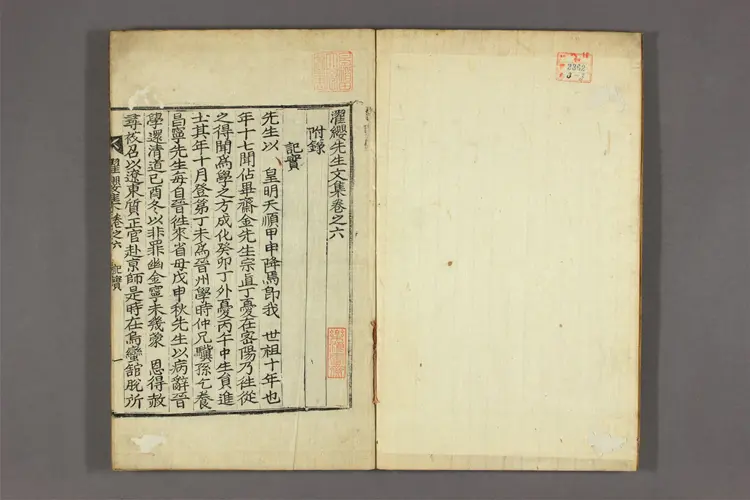 濯纓先生文集卷之六
附錄
記實
先生以 皇明天順甲申降焉卽我 世祖十年也
年十七聞佔畢齋金先生宗直丁憂在密陽乃往從
之得聞爲學之方成化癸卯丁外憂丙午中生負進
士其年十月登第丁未爲晉州學時仲兄驥孫乞養
昌寧先生每自晉往來省母戊申秋先生以病辭晉
學還淸道己酉冬以非罪幽金寧未幾蒙 恩得赦
尋被召以遼東質正官赴京師是時在烏蠻館脫所
濯纓集卷之六 記實 一
2362